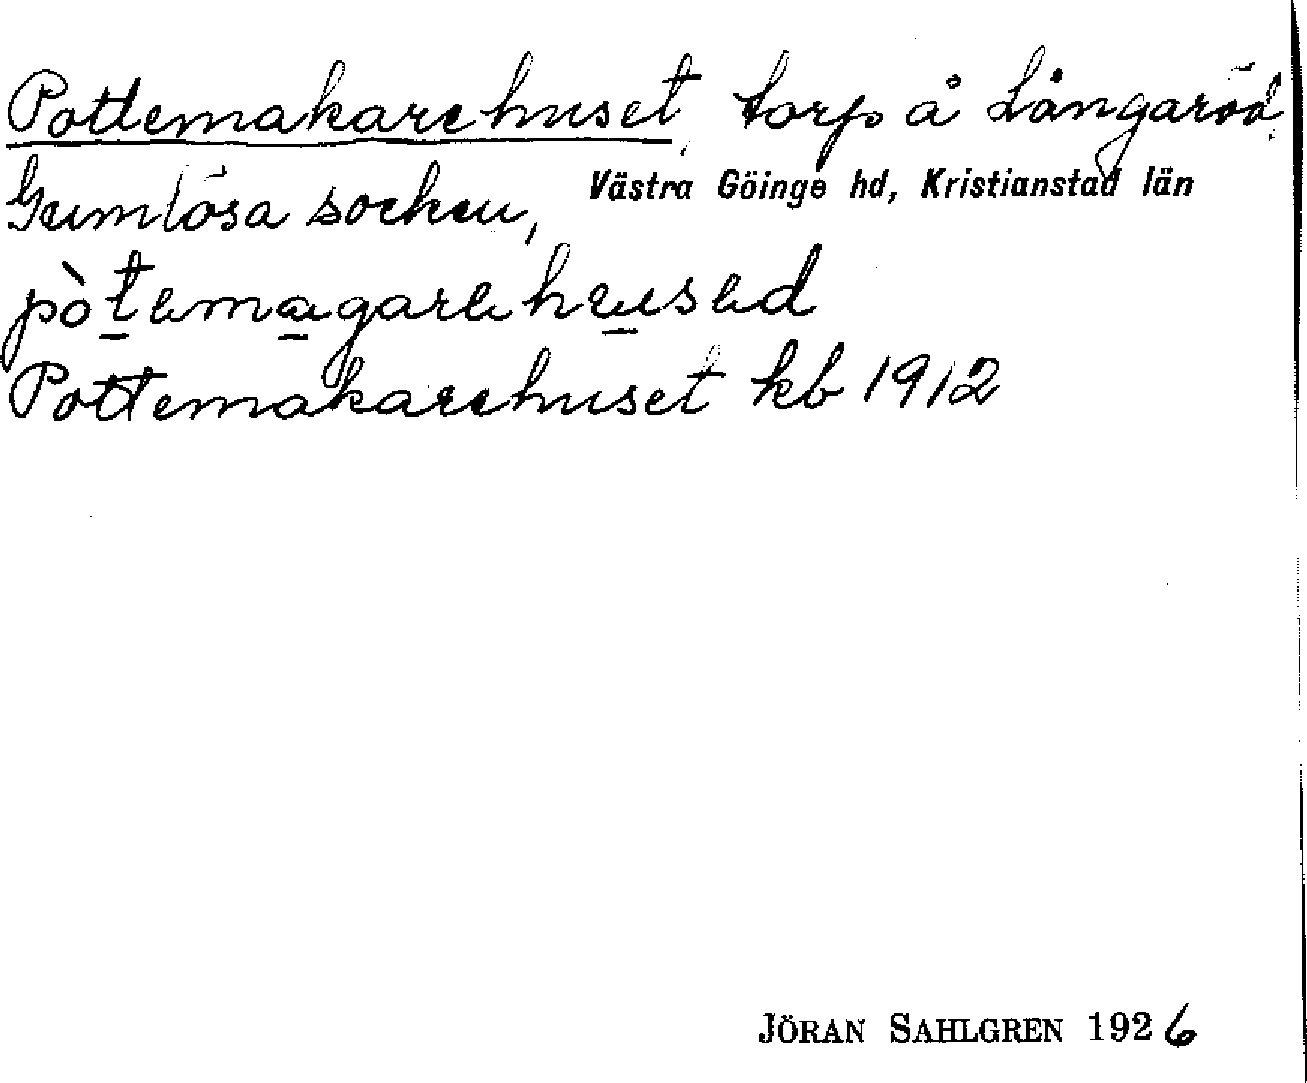 Pottemakarehuset, torp å Långaröd,
Gumlösa socken, Västra Göinge hd, Kristianstad län
pòtemagarehused
Pottemakarehuset kb 1912
JÖRAN SAHLGREN 1926